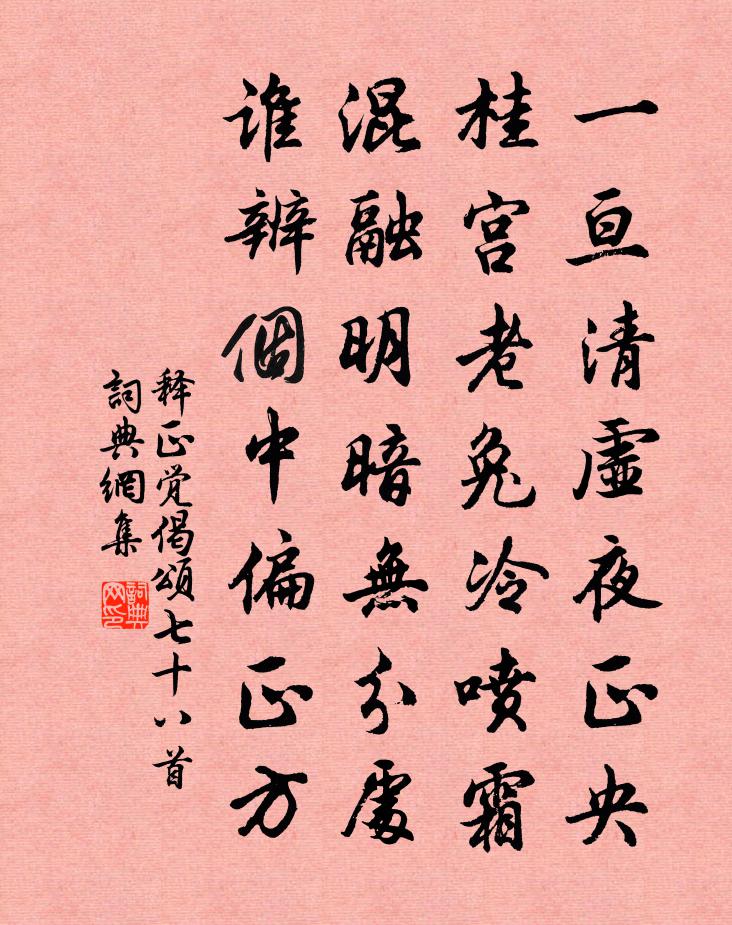 一亘清虚夜正央
桂宫老兔冷喷霜
混融明暗無分處
谁辨個中偏正方
释正觉偈頌七十八首
詞典網集
詞典
网印